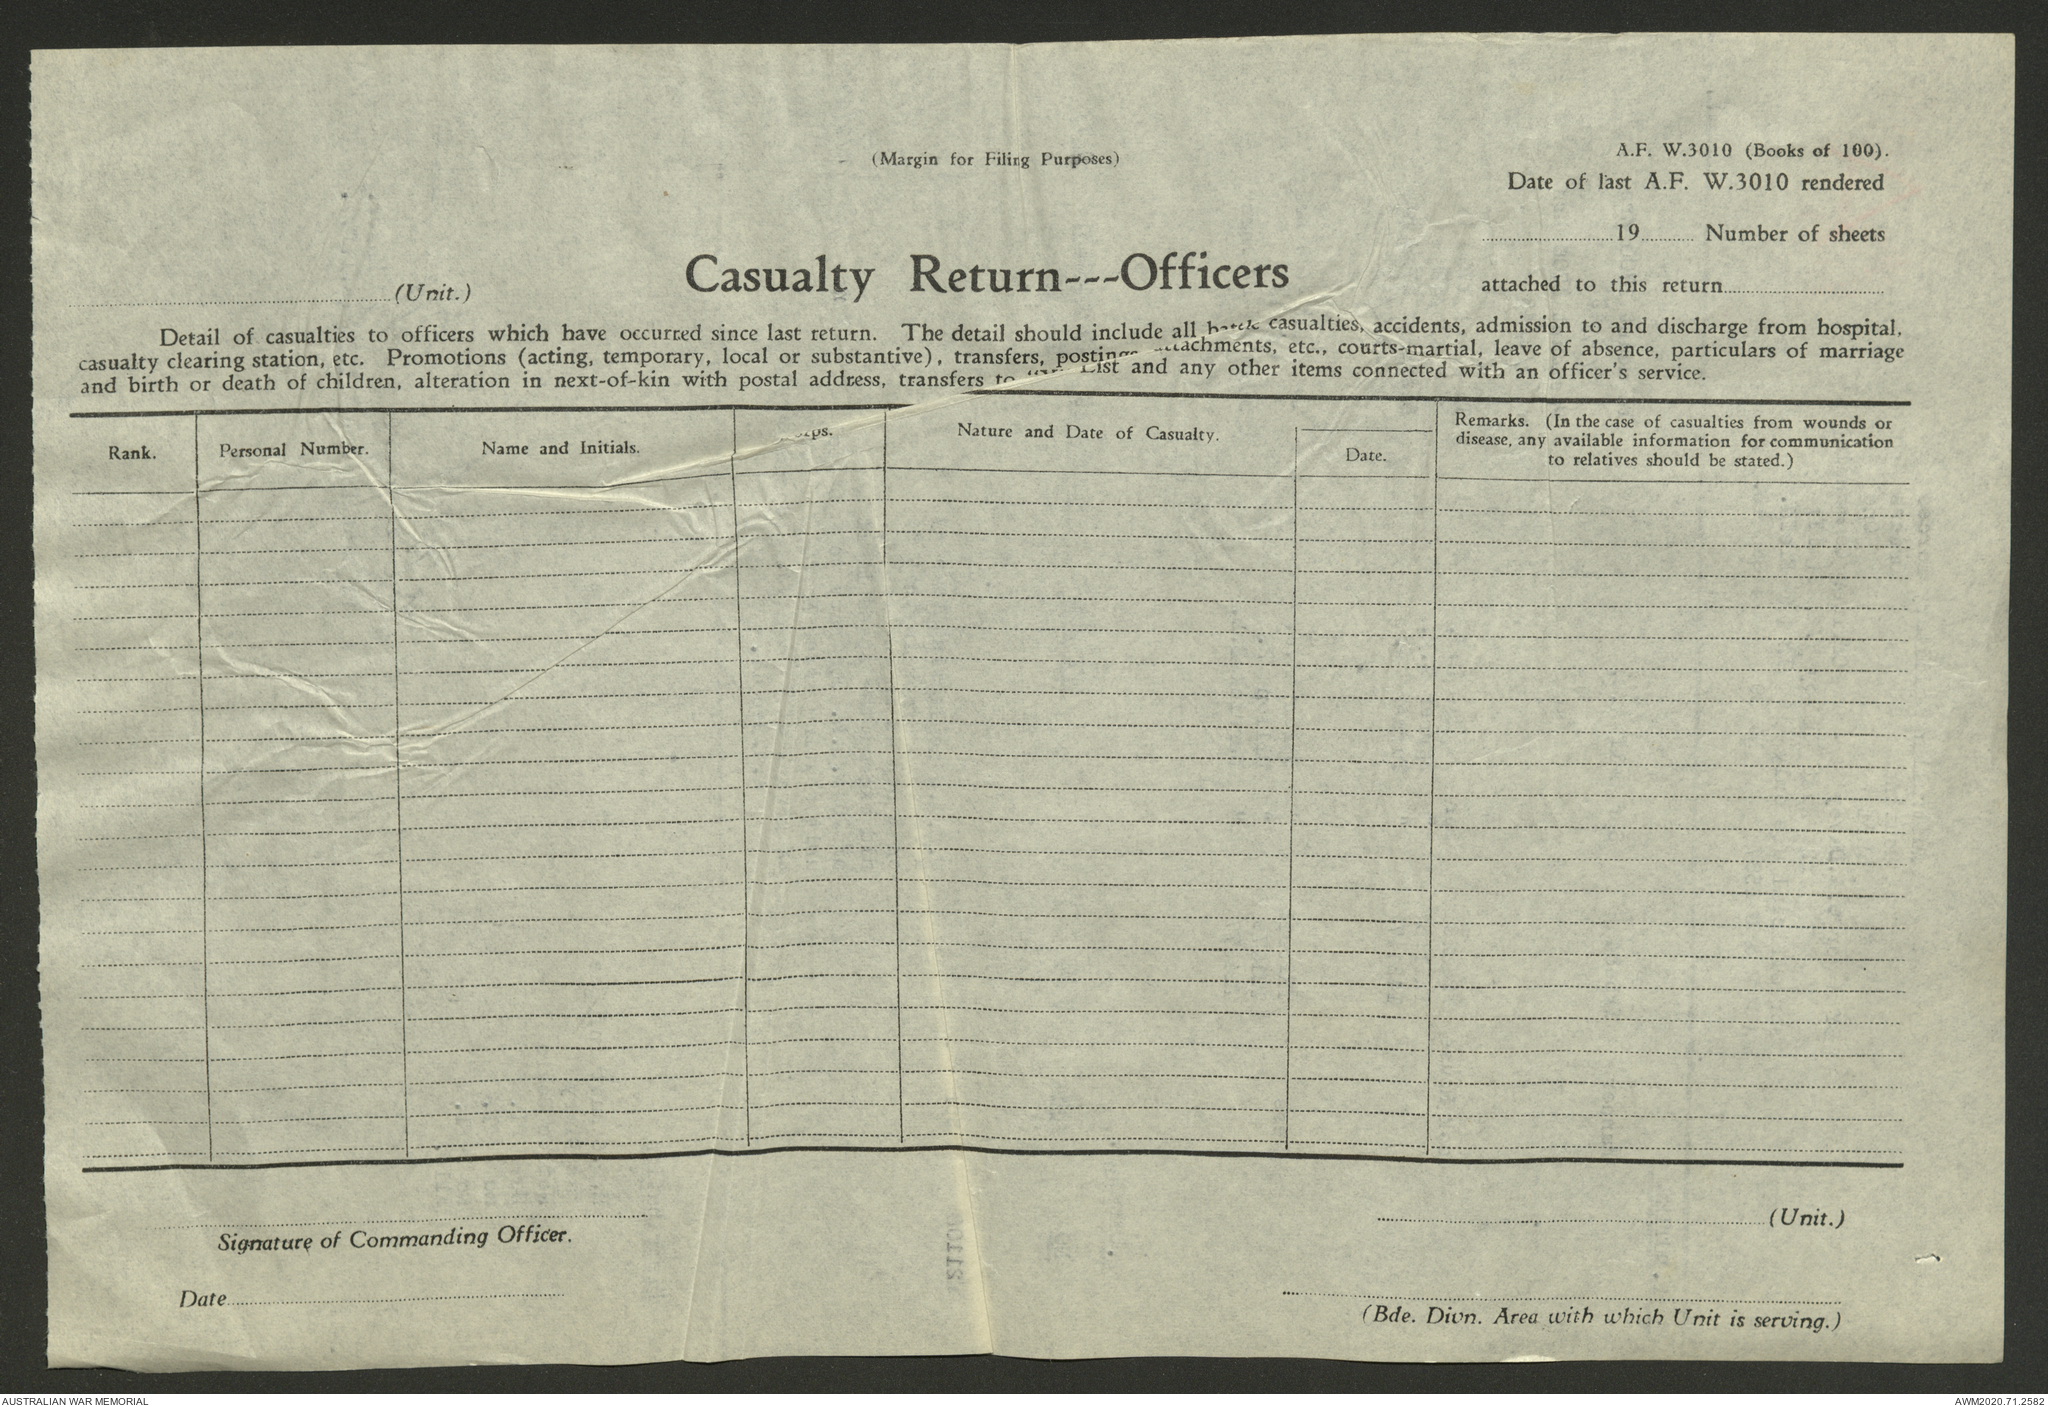 (Margin for Filing Purposes)
A.F. W.3010 (Books of 100).
Date of last A.F. W.3010 rendered
19 Number of sheets
attached to this return
(Unit.)
Casualty Return---Officers
Detail of casualties to officers which have occurred since last return. The detail should include all casualties, accidents, admission to and discharge from hospital,
casualty clearing station, etc. Promotions (acting, temporary, local or substantive), transfers, postings, attachments, etc., courts-martial, leave of absence, particulars of marriage
and birth or death of children, alteration in next-of-kin with postal address, transfers to List and any other items connected with an officer's service.
Rank.
Personal Number.
Name and Initials.
Nature and Date of Casualty.
Date.
Remarks. (In the case of casualties from wounds or
disease, any available information for communication
to relatives should be stated.)
Signature of Commanding Officer.
Date
(Unit.)
(Bde. Divn. Area with which Unit is serving.)
AUSTRALIAN WAR MEMORIAL
AWM2020.71.2582